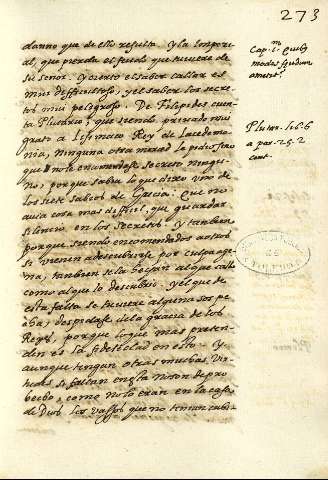 273
danno que de ello resulta. Y la Imperi-
al, que pierda el feudo que tuviere de
su señor. Y cierto el saber callar es
mui difficultoso, y el saber los secre-
tos mui peligroso. De Filipides cuen-
ta Plutarco, que siendo privado mui
grato a Lisimaco Rey de Lacedemo-
nia, ninguna otra merced le pidio sino
que no le encomendase secreto ningu-
no, porque sabia lo que dixo uno de
los siete sabios de Grecia. Que no
avia cosa mas difficil, que guardar
silencio en los secretos. Y tambien
porque siendo encomendados a otros
se vienen a descubrir se por culpa age-
na, tambien se la hechan al que callo
como al que lo descubrio. Y el que de
esta falta se tuviere alguna sos pe
cha, despidase de la gracia de los
Reyes, porque lo que mas preten-
den es la fidelidad en esto. Y
aunque tengan otras muchas vir-
tudes si faltan en esta no son de pro
vecho, como no lo eran en la casa
de Dios los vassos que no tenian cubi-
Cap. 1. Quib
modis feudum
amitt.
Plutar. lib. 6
cent.